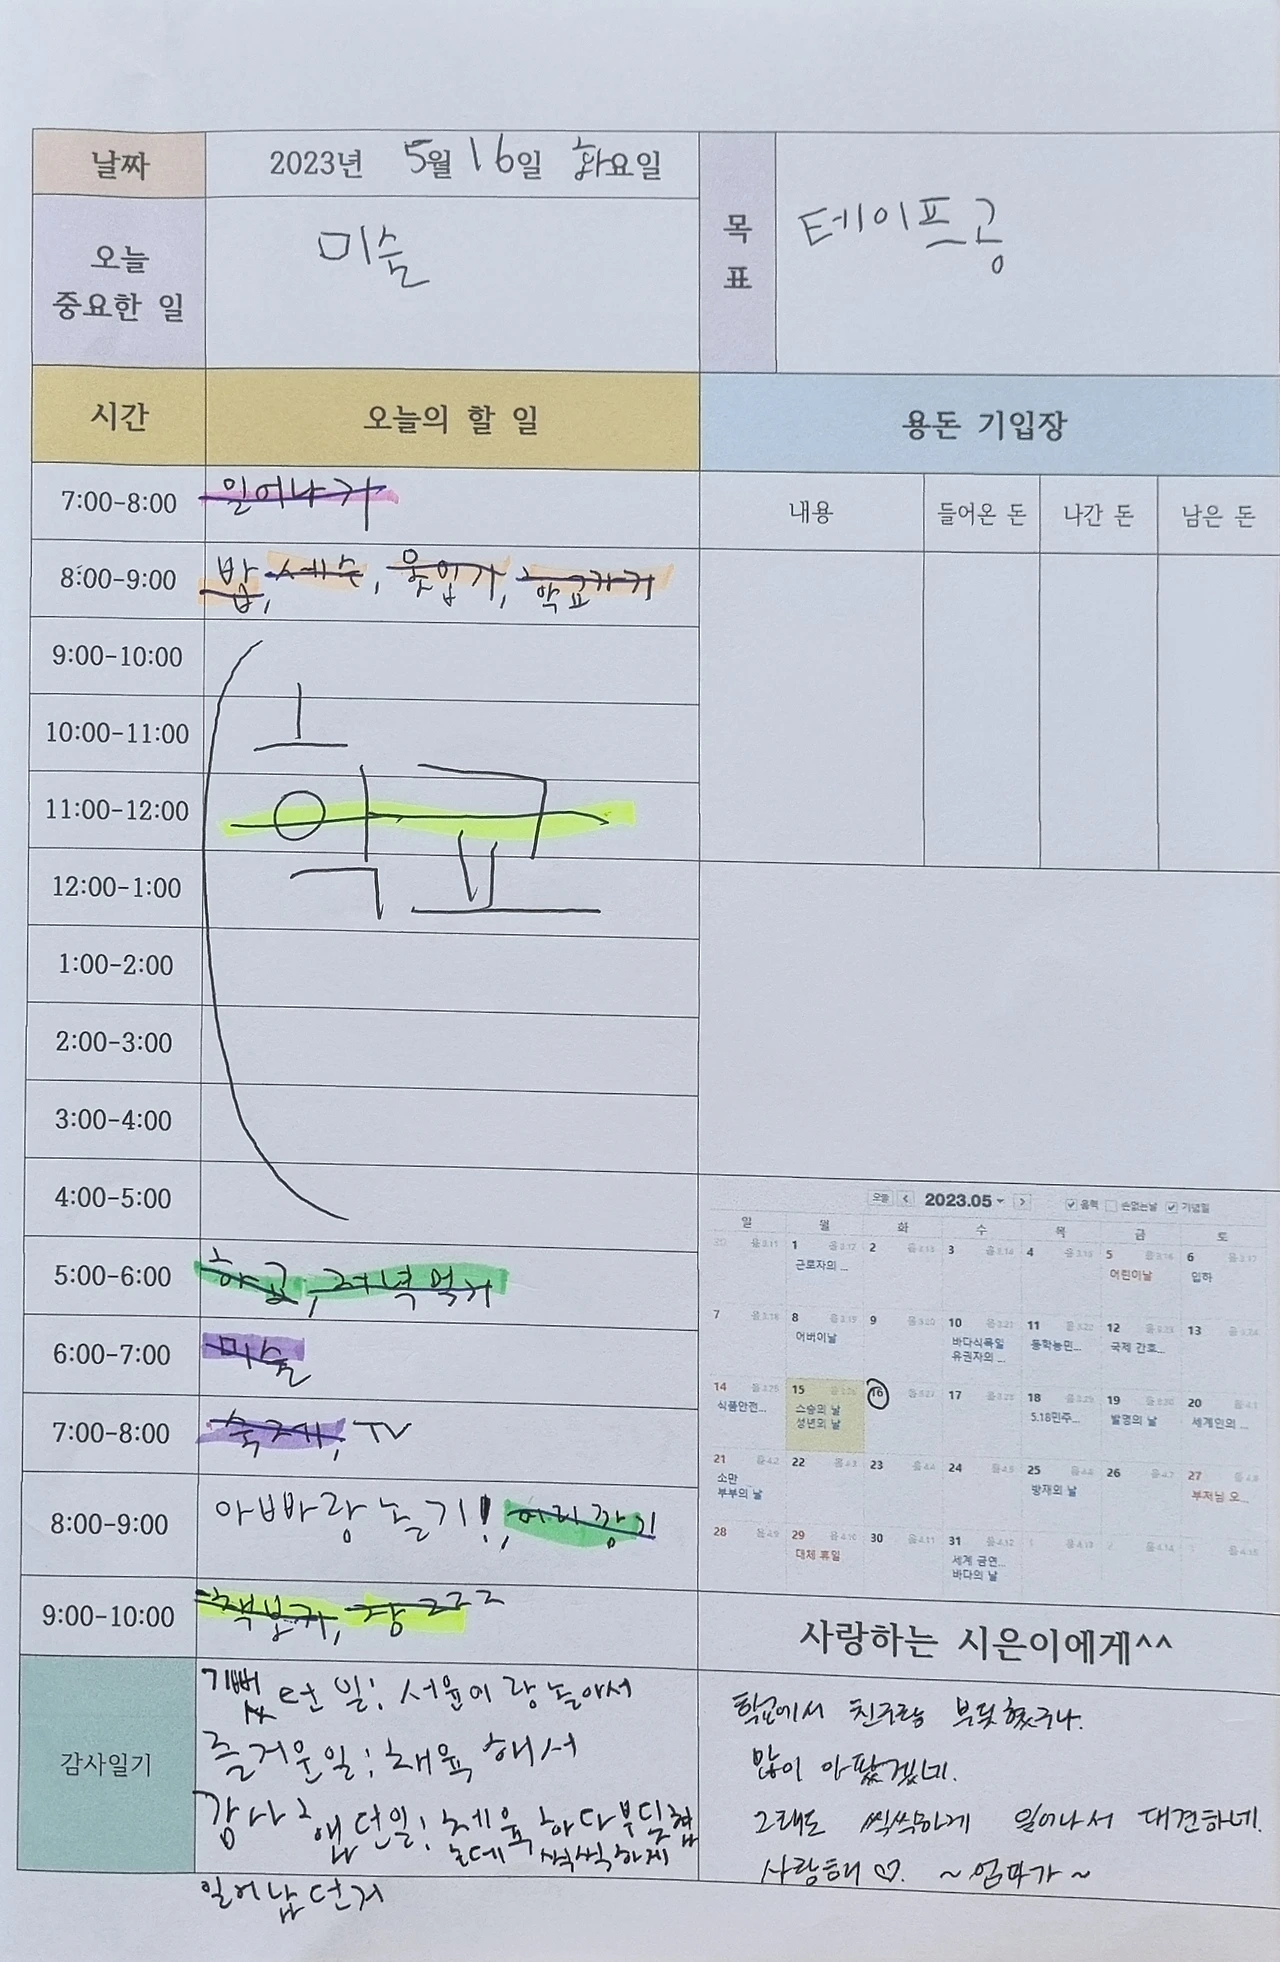 날짜 2023년 5월 16일 화요일
오늘 중요한 일 미술
목표 테이프공
시간 오늘의 할 일
7:00-8:00 일어나기
8:00-9:00 밥, 세수, 옷입기, 학교가기
9:00-10:00
10:00-11:00
11:00-12:00
12:00-1:00
1:00-2:00
2:00-3:00
3:00-4:00
4:00-5:00
5:00-6:00 하교, 저녁먹기
6:00-7:00 미술
7:00-8:00 숙제, TV
8:00-9:00 아빠랑 놀기!, 머리깡기
9:00-10:00 책보기, 잠
용돈 기입장
내용 들어온 돈 나간 돈 남은 돈
오늘 < 2023.05 > 음력 손없는날 기념일
일 월 화 수 목 금 토
1 2 3 4 5 6
근로자의 ... 어린이날 입하
7 8 9 10 11 12 13
어버이날 바다식목일 동학농민... 국제 간호...
유권자의 ...
14 15 16 17 18 19 20
식품안전... 스승의 날 5.18민주... 발명의 날 세계인의 ...
성년의 날
21 22 23 24 25 26 27
소만 방재의 날 부처님 오...
부부의 날
28 29 30 31
대체 휴일 세계 금연...
바다의 날
감사일기
즐거운일: 채육 해서
일어남 단거
사랑하는 시은이에게^^
학교에서 친구랑 부딪혔구나.
많이 아팠겠네.
그래도 씩씩하게 일어나서 대견하네.
사랑해 ♡. ~ 엄마가 ~